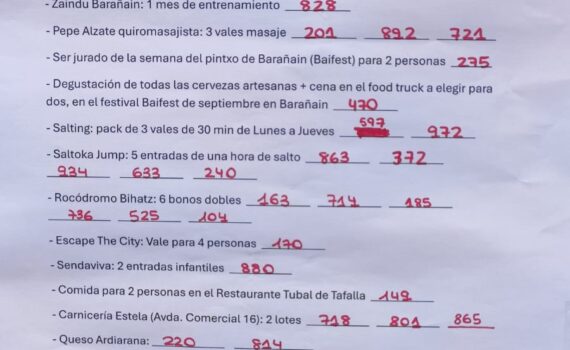 - Zaindu Barañain: 1 mes de entrenamiento 828
- Pepe Alzate quiromasajista: 3 vales masaje 201 892 721
- Ser jurado de la semana del pintxo de Barañain (Baifest) para 2 personas 275
- Degustación de todas las cervezas artesanas + cena en el food truck a elegir para
dos, en el festival Baifest de septiembre en Barañain 470
- Salting: pack de 3 vales de 30 min de Lunes a Jueves 597 972
- Saltoka Jump: 5 entradas de una hora de salto 863 372
934 633 240
- Rocódromo Bihatz: 6 bonos dobles 163 714 185
736 525 104
- Escape The City: Vale para 4 personas 170
- Sendaviva: 2 entradas infantiles 880
- Comida para 2 personas en el Restaurante Tubal de Tafalla 149
- Carnicería Estela (Avda. Comercial 16): 2 lotes 718 801 865
- Queso Ardiarana: 220 814